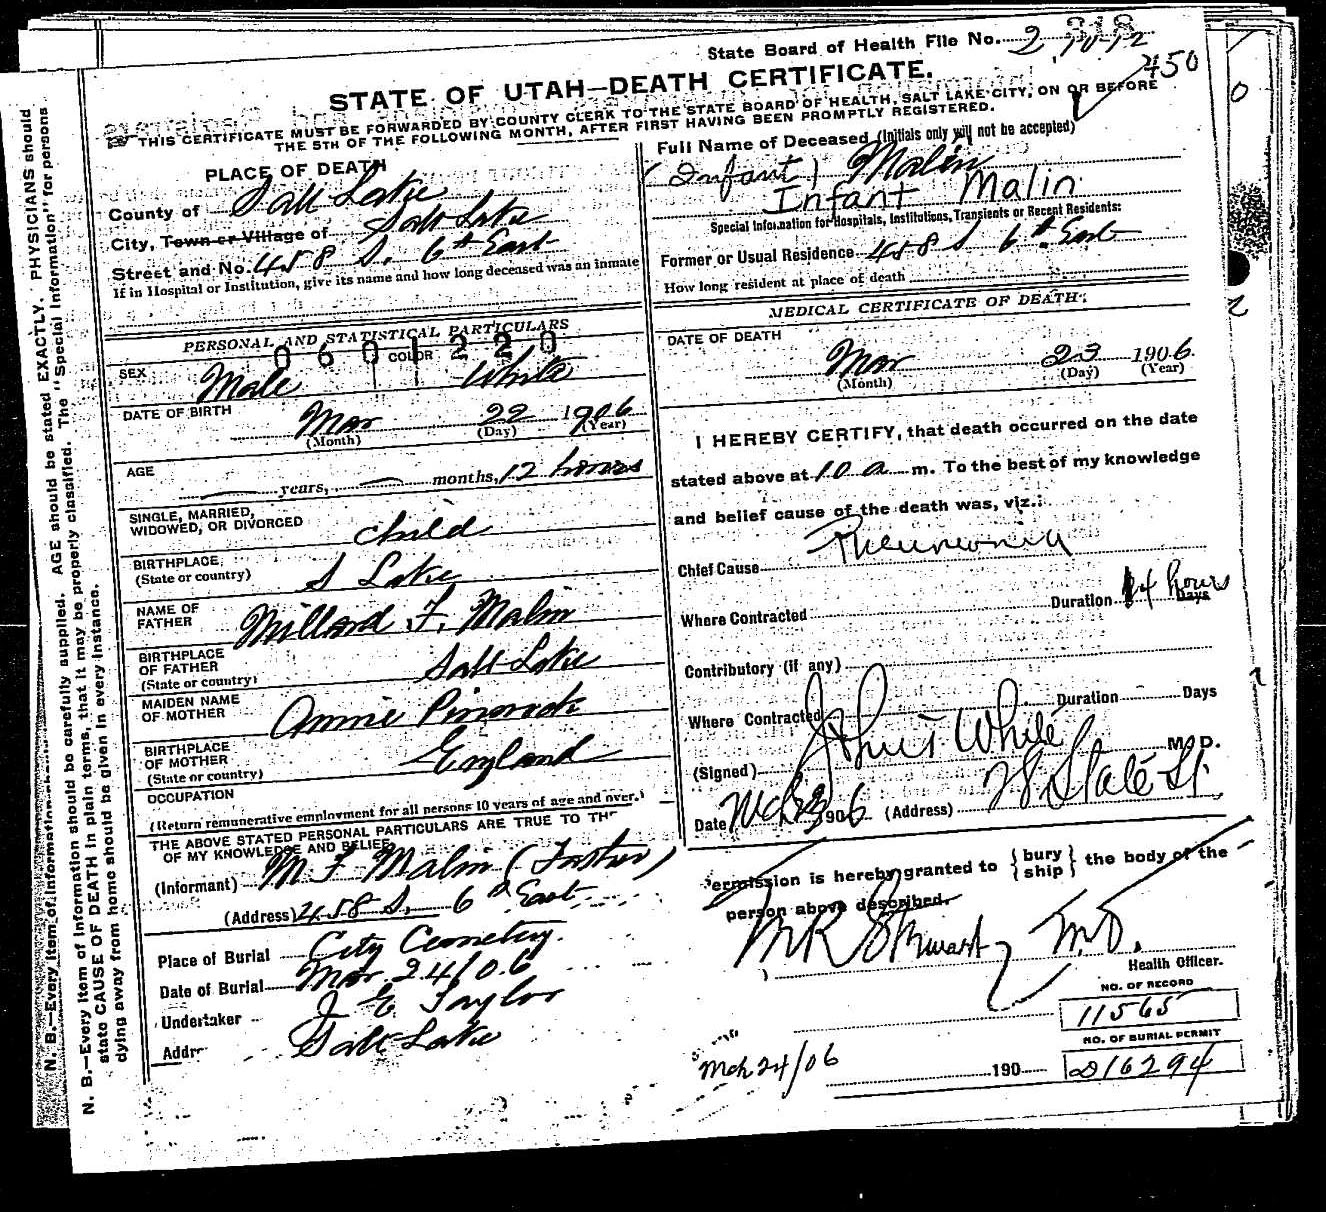 State Board of Health File No. 2
318
450
STATE OF UTAH—DEATH CERTIFICATE.
THIS CERTIFICATE MUST BE FORWARDED BY COUNTY CLERK TO THE STATE BOARD OF HEALTH, SALT LAKE CITY, ON OR BEFORE
THE 5TH OF THE FOLLOWING MONTH, AFTER FIRST HAVING BEEN PROMPTLY REGISTERED.
PLACE OF DEATH
County of Salt Lake
City, Town or Village of Salt Lake
Street and No. 458 S. 6th East
If in Hospital or Institution, give its name and how long deceased was an inmate
PERSONAL AND STATISTICAL PARTICULARS
060 220
SEX Male COLOR White
DATE OF BIRTH Mar 22 1906
(Month) (Day) (Year)
AGE years, months, 12 hours
SINGLE, MARRIED,
WIDOWED, OR DIVORCED child
BIRTHPLACE,
(State or country) S Lake
NAME OF
FATHER Millard F. Malin
BIRTHPLACE
OF FATHER
(State or country) Salt Lake
MAIDEN NAME
OF MOTHER Annie
BIRTHPLACE
OF MOTHER
(State or country) England
OCCUPATION
(Return remunerative employment for all persons 10 years of age and over.)
THE ABOVE STATED PERSONAL PARTICULARS ARE TRUE TO THE
OF MY KNOWLEDGE AND BELIEF
(Informant) M F Malin (Father)
(Address) 458 S. 6th East
Place of Burial City Cemetery.
Date of Burial Mar 24/06
Undertaker J E Taylor
Addr Salt Lake
Full Name of Deceased (Initials only will not be accepted)
(Infant) Malin
Infant Malin
Special Information for Hospitals, Institutions, Transients or Recent Residents:
Former or Usual Residence 458 S 6th East
How long resident at place of death
MEDICAL CERTIFICATE OF DEATH
DATE OF DEATH
Mar 23 1906.
(Month) (Day) (Year)
I HEREBY CERTIFY, that death occurred on the date
stated above at 10 a m. To the best of my knowledge
and belief cause of the death was, viz.:
Chief Cause Pneumonia
Where Contracted Duration 14 hours Days
Contributory (if any)
Where Contracted Duration Days
(Signed) White M. D.
Date Mch 23 1906 (Address) State St.
Permission is hereby granted to { bury ship } the body of the
person above described.
M R Stewart M.D.
Health Officer.
NO. OF RECORD
11565
NO. OF BURIAL PERMIT
Mch 24/06 190 D16294
N. B.—Every item of information should be carefully supplied. AGE should be stated EXACTLY. PHYSICIANS should
state CAUSE OF DEATH in plain terms, that it may be properly classified. The "Special Information" for persons
dying away from home should be given in every instance.
N. B.—Every item of information